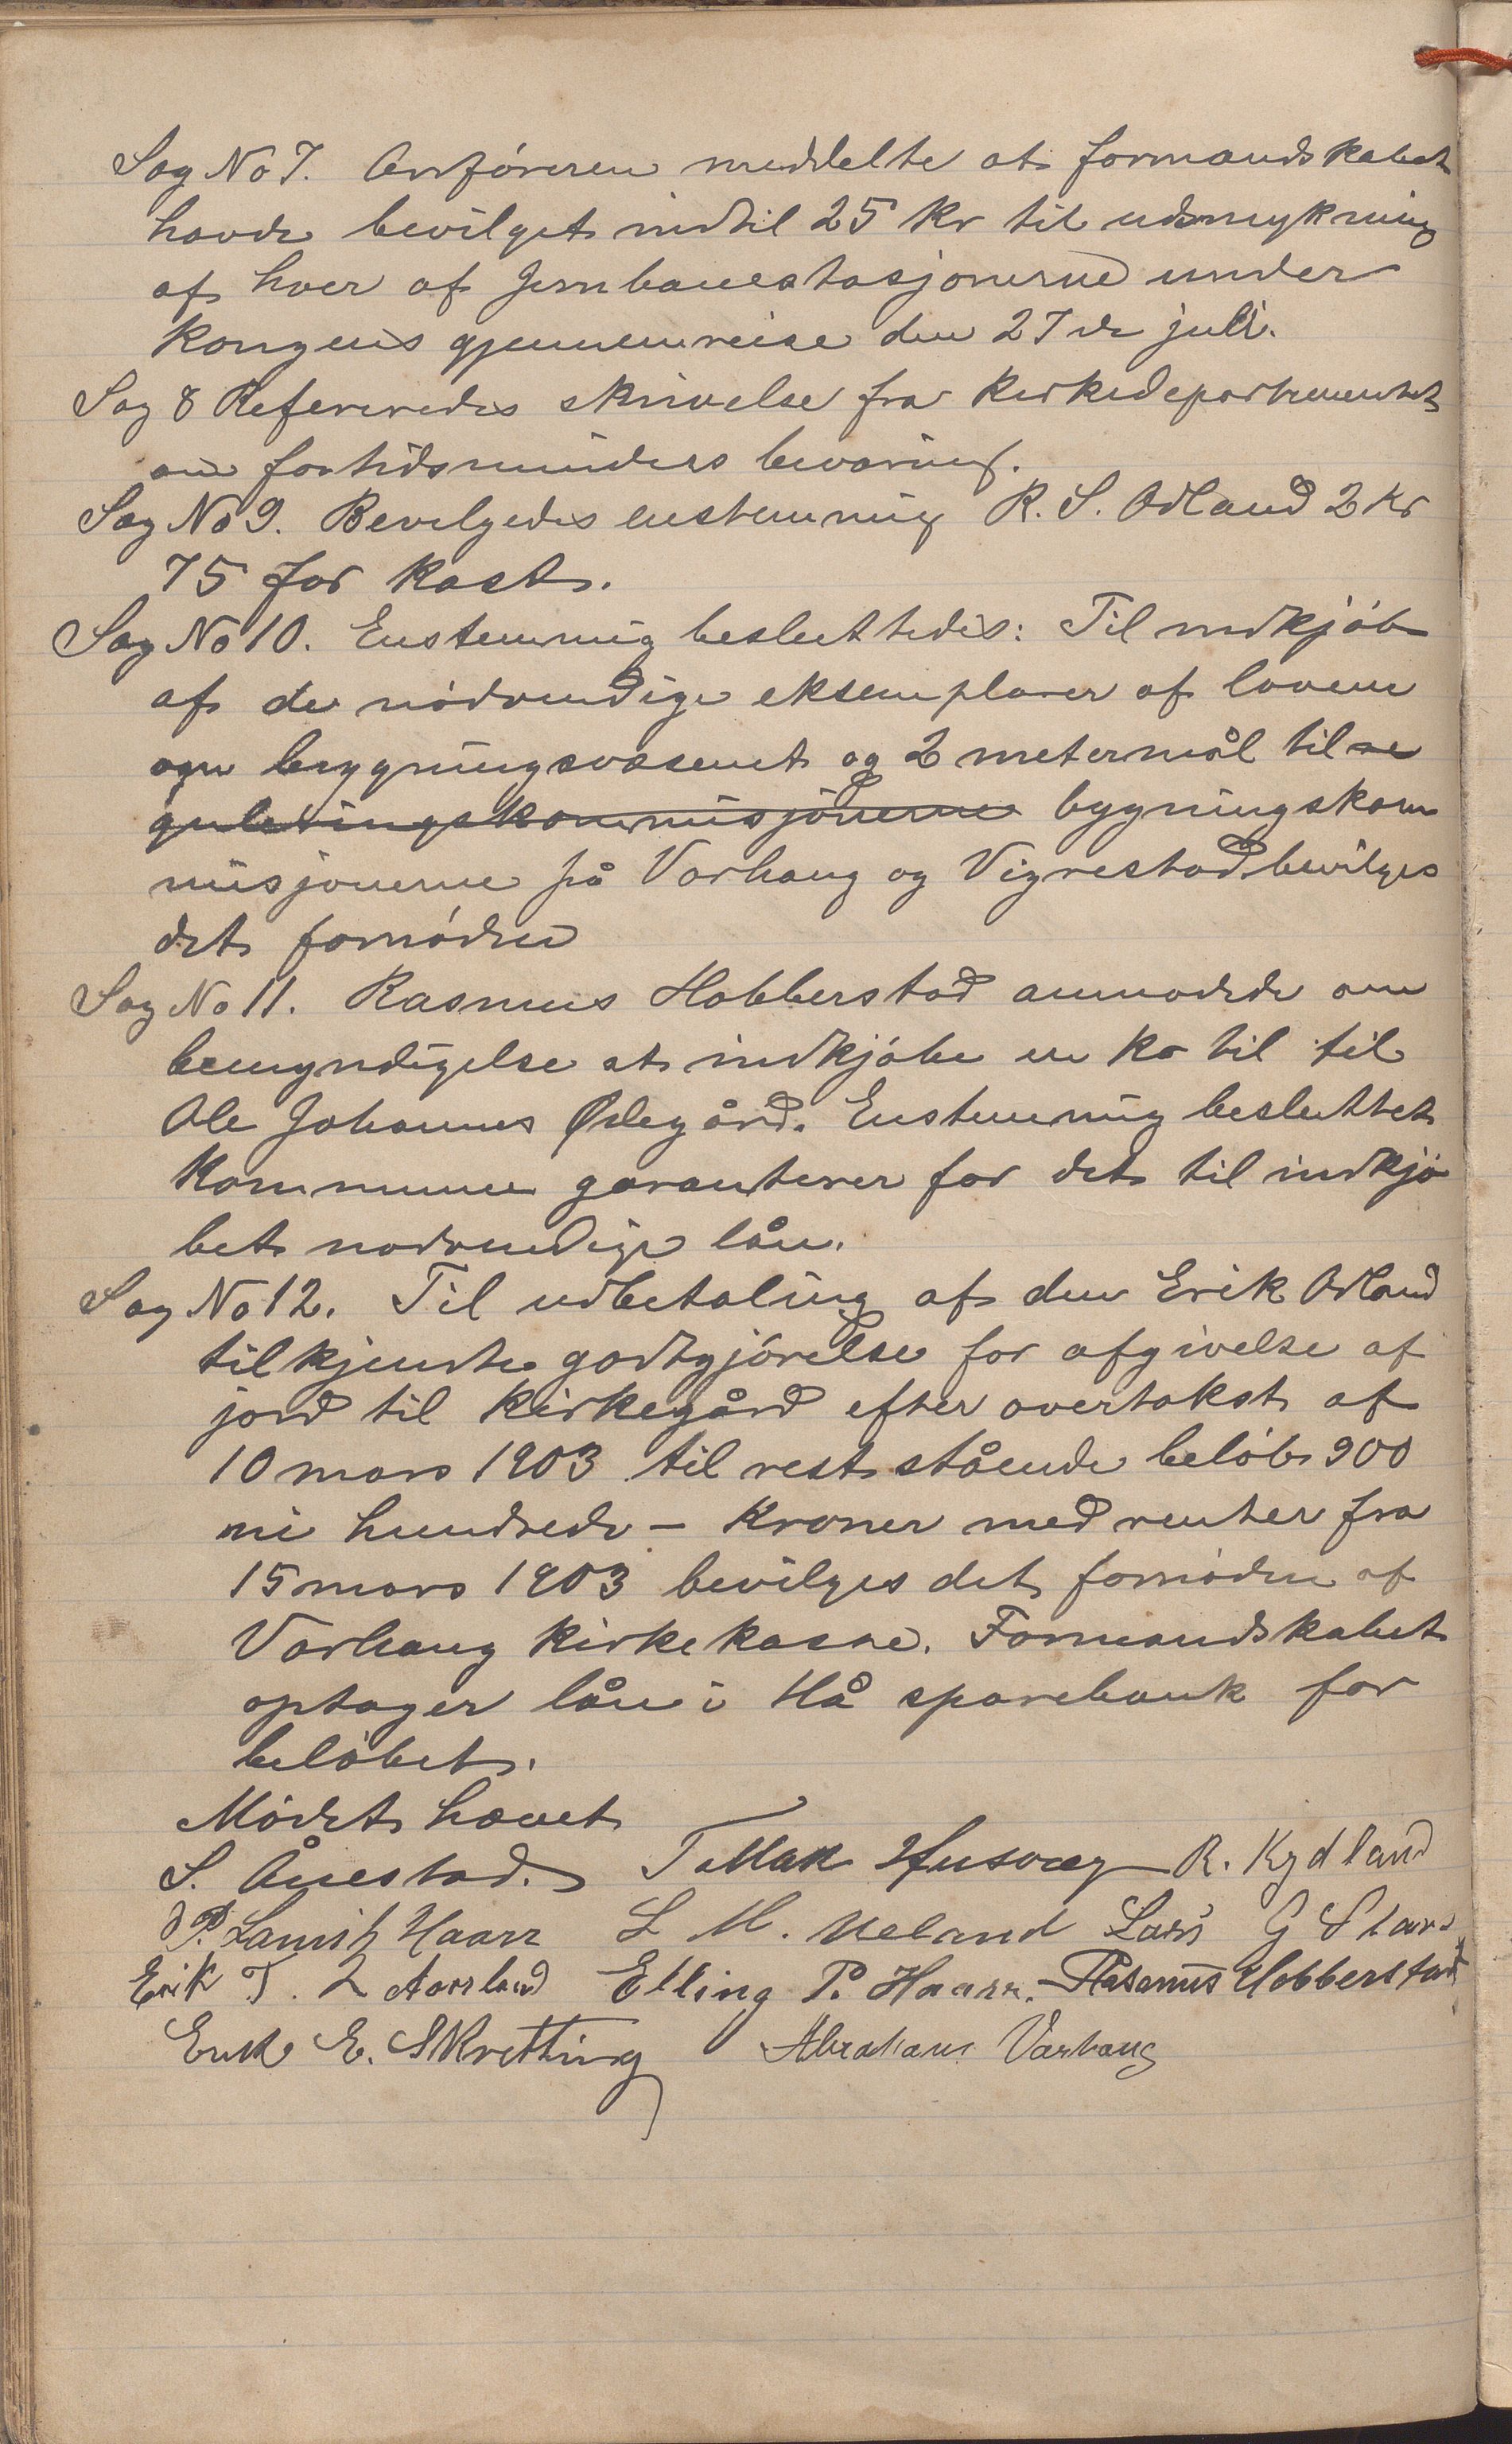 Sag No 7. Ordføreren meddelte at formandskabet
havde bevilget indtil 25 kr til udsmykning
af hver af Jernbanestasjonerne under
kongens gjennemreise den 27de juli.
Sag 8 Refereredes skrivelse fra kirkedepartementet
om fortidsminders bevaring.
Sag No 9. Bevilgedes enstemmig R. S. Odland 2 kr
75 for kost.
Sag No 10. Enstemmig besluttedes: Til indkjøb
af de nødvendige eksemplarer af lovene
om bygningsvæsenet og 2 metermål til re
guleringskommisjonerne bygningskom
misjonerne på Varhaug og Vigrestad bevilges
det fornødne
Sag No 11. Rasmus Hobberstad anmodede om
bemyndigelse at indkjøbe en ko til til
Ole Johannes Ødegård. Enstemmig besluttet
Kommunen garanterer for det til indkjø
bet nødvendige lån.
Sag No 12. Til udbetaling af den Erik Odland
tilkjendte godtgjørelse for afgivelse af
jord til kirkegård efter overtakst af
10 mars 1903 til rest stående beløb 900
ni hundrede - kroner med renter fra
15 mars 1903 bevilges det fornødne af
Varhaug kirkekasse. Formandskabet
optager lån i Hå sparebank for
beløbet.
Mødet hævet
S. Ånestad. T Mak Husvæg R. Kydland
P. Haarr L M. Ueland Lars G
Erik T. Aarsland Elling P. Haarr. Rasmus Hobberstad
Erik E. Skretting Abraham Varhaug